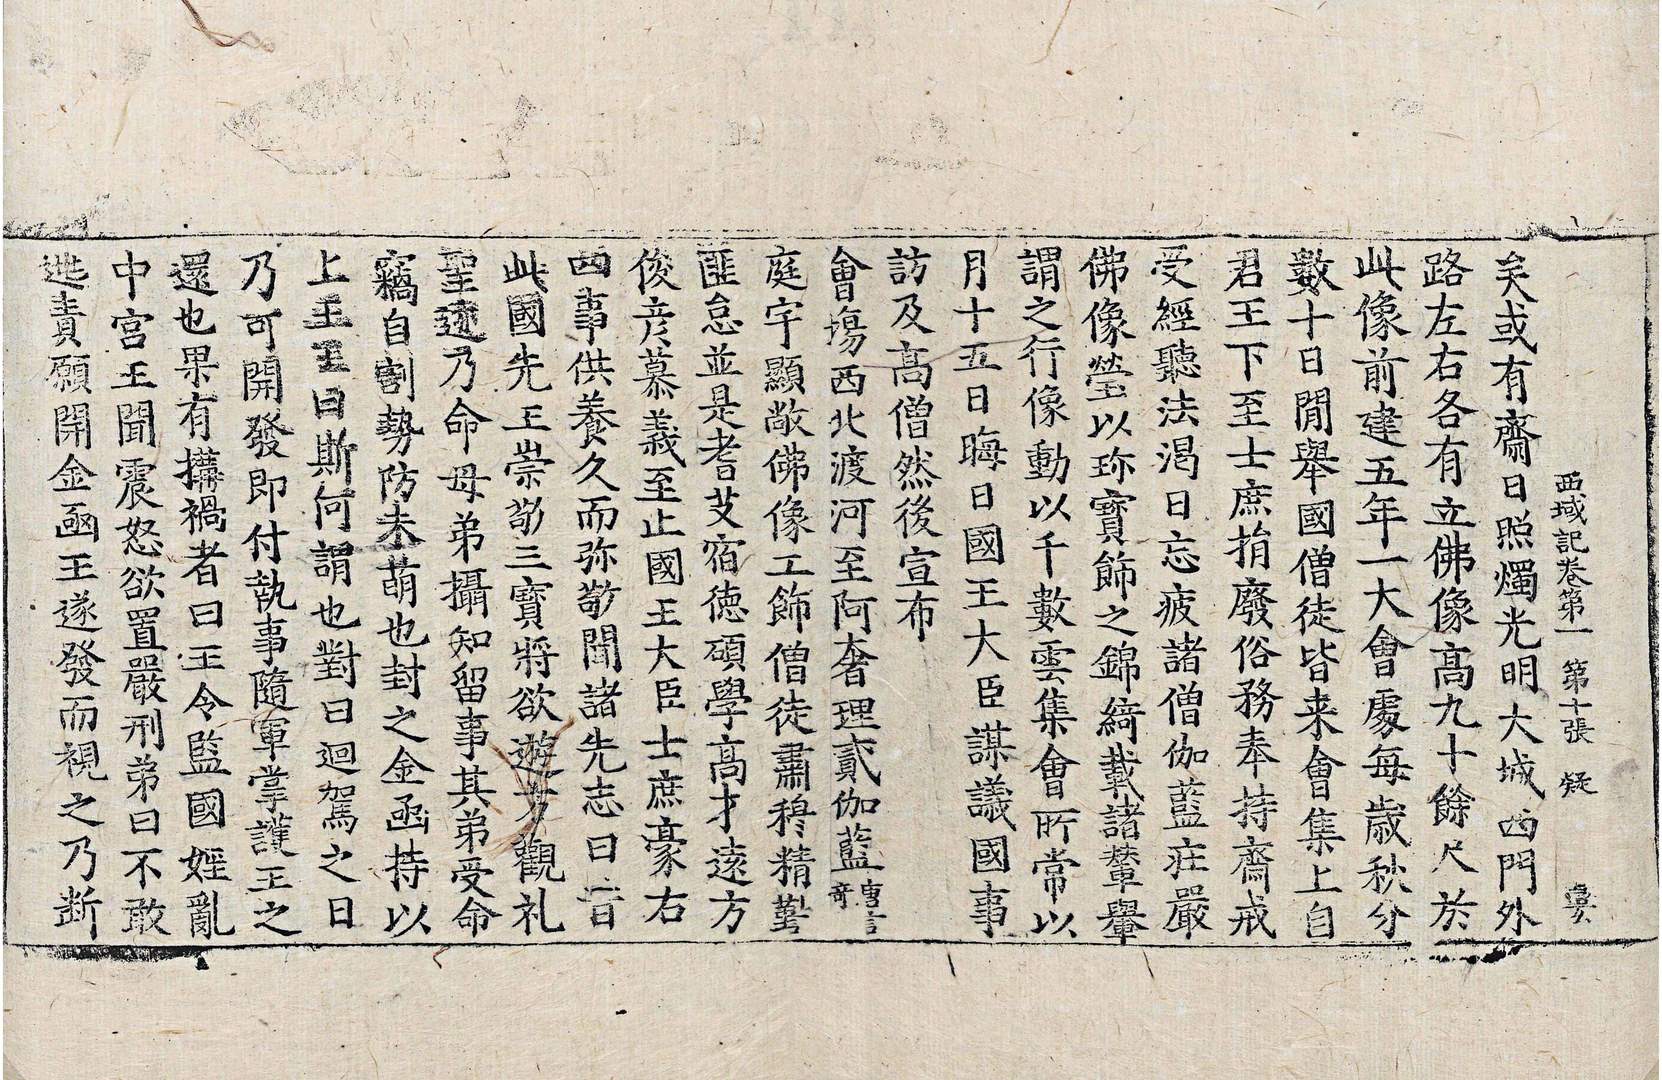 西域記卷第一 第十張 疑
矣或有齋日照燭光明大城西門外
路左右各有立佛像高九十餘尺於
此像前建五年一大會處每歲秋分
數十日間舉國僧徒皆来會集上自
君王下至士庶捐廢俗務奉持齋戒
受經聽法渴日忘疲諸僧伽藍莊嚴
佛像瑩以珎寶飾之錦綺載諸輦轝
謂之行像動以千數雲集會所常以
月十五日晦日國王大臣謀議國事
訪及高僧然後宣布
會場西北渡河至阿奢理貳伽藍唐言奇
庭宇顯敞佛像工飾僧徒肅穆精勤
匪怠並是耆艾宿德碩學高才遠方
俊彦慕義至止國王大臣士庶豪右
四事供養久而弥敬聞諸先志曰昔
此國先王崇敬三寶將欲遊方觀礼
聖迹乃命母弟攝知留事其弟受命
竊自割勢防未萌也封之金函持以
上王王曰斯何謂也對曰迴駕之日
乃可開發即付執事隨軍掌護王之
還也果有搆禍者曰王令監國婬亂
中宮王聞震怒欲置嚴刑弟曰不敢
逃責願開金函王遂發而視之乃断